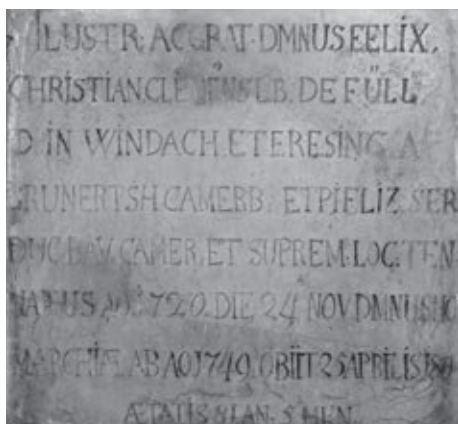 ILUSTR: AC GRAT. DMNUS FELIX,
CHRISTIAN. CLEMENS L.B. DE FÜLL
IN WINDACH. ETERESING. A
GRUNERTSHCAMERB: ETPIFLIZ, SER
DUC BAV. CAMER. ET SUPREM: LOC: TEN
NATUS AO: 1720. DIE 24 NOV DMNUS HO
MARCHIÆ AB AO 1749. OBIIT 25 APRILIS
ÆTATIS 81 AN. 5 MEN.